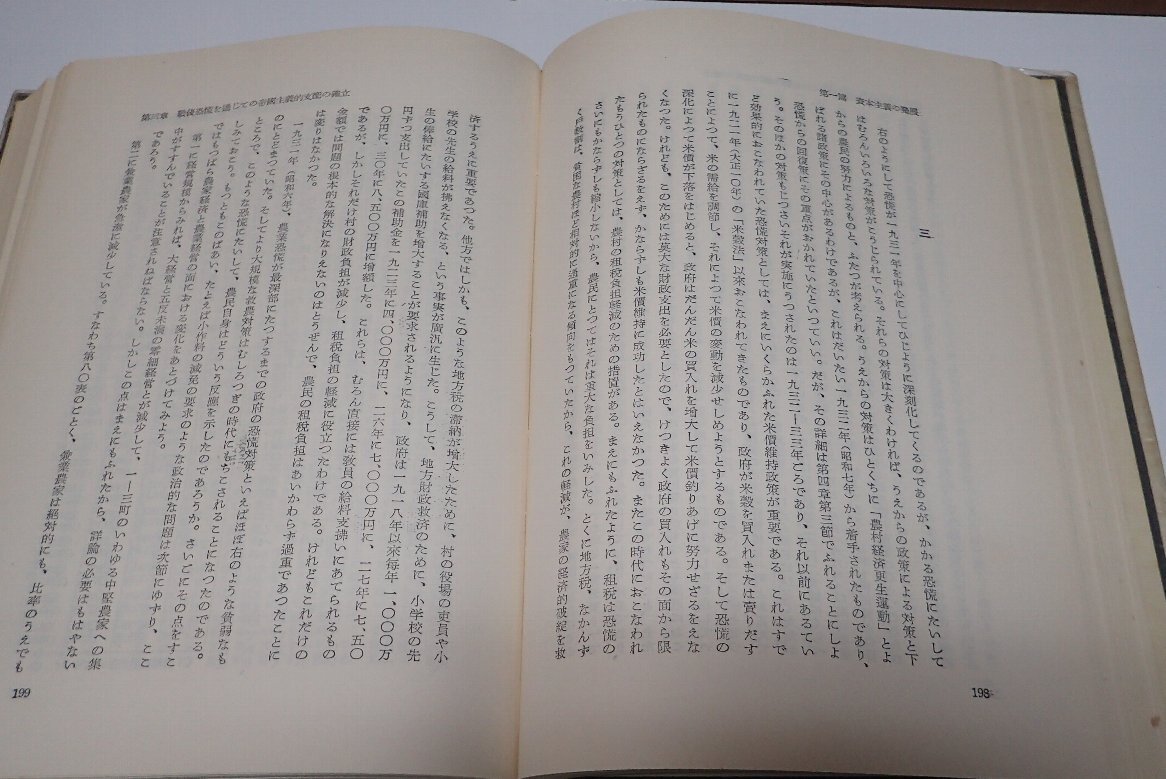 第一篇　資本主義の発展
三
右のようにして恐慌が一九三一年を中心にしてひじように深刻化してくるのであるが、かかる恐慌にたいして
はむろんいろいろな対策がこうじられている。それらの対策は大きくわければ、うえからの政策による対策と下
からの農民の努力によるものと、ふたつが考えられる。うえからの対策はひとくちに「農村経済更生運動」とよ
ばれる諸政策にその中心があるわけであるが、これはだいたい一九三二年（昭和七年）から着手されたものであり、
恐慌からの回復策にその重点がおかれていたといつていい。だが、その詳細は第四章第三節でふれることにしよ
う。そのほかの対策もじつさいそれが実施にうつされたのは一九三二―三三年ごろであり、それ以前にあるてい
ど効果的におこなわれていた恐慌対策としては、まえにいくらかふれた米価維持政策が重要である。これはすで
に一九二一年（大正一〇年）の「米穀法」以来おこなわれてきたものであり、政府が米穀を買入れまたは売りだす
ことによつて、米の需給を調節し、それによつて米価の変動を減少せしめようとするものである。そして恐慌の
深化によつて米價が下落をはじめると、政府はだんだん米の買入れを増大して米價釣りあげに努力せざるをえな
くなつた。けれども、このためには莫大な財政支出を必要としたので、けつきよく政府の買入れもその面から限
られたものにならざるをえず、かならずしも米價維持に成功したとはいえなかつた。またこの時代におこなわれ
たもうひとつの対策としては、農村の租税負担軽減のための措置がある。まえにもふれたように、租税は恐慌の
さいにもかならずしも縮小しないから、農民にとつてはそれは重大な負担をいみした。とくに地方税、なかんず
く戸数割は、貧困な農村ほど相対的に過重になる傾向をもつていたから、これの軽減が、農家の経済的破綻を救
198
第三章　戦後恐慌を通じての帝國主義的支配の確立
済するうえに重要であつた。他方ではしかも、このような地方税の滞納が増大したために、村の役場の吏員や小
学校の先生の給料が拂えなくなる、という事実が廣汎に生じた。こうして、地方財政救済のために、小学校の先
生の俸給にたいする國庫補助を増大することが要求されるようになり、政府は一九一八年以來毎年一、〇〇〇万
円ずつ支出していたこの補助金を一九二三年に四、〇〇〇万円に、二六年に七、〇〇〇万円に、二七年に七、五〇
〇万円に、三〇年に八、五〇〇万円に增額した。これらは、むろん直接には教員の給料支拂いにあてられるもの
であるが、しかしそれだけ村の財政負担が減少し、租税負担の軽減に役立つたわけである。けれどもこれだけの
金額では問題の根本的な解決になりえないのはとうぜんで、農民の租税負担はあいかわらず過重であつたことに
は変りはなかつた。
一九三一年（昭和六年）、農業恐慌が最深部にたつするまでの政府の恐慌対策といえばほぼ右のような貧弱なも
のにとどまつていた。そしてより大規模な救農対策はむしろつぎの時代にもちこされることになつたのである。
ところで、このような恐慌にたいして、農民自身はどういう反應を示したのであろうか。さいごにその点をすこ
しみておこう。もつともこのばあい、たとえば小作料の減免の要求のような政治的な問題は次節にゆずり、ここ
ではもつぱら農家経済と農業経営の面における変化をあとづけてみよう。
第一に経営規模からみれば、大経営と五反未満の零細経営とが減少して、一―三町のいわゆる中堅農家への集
中がすすんでいることが注意されねばならない。しかしこの点はまえにもふれたから、詳論の必要はもはやない
であろう。
第二に兼業農家が急激に減少している。すなわち第八〇表のごとく、兼業農家は絶対的にも、比率のうえでも
199